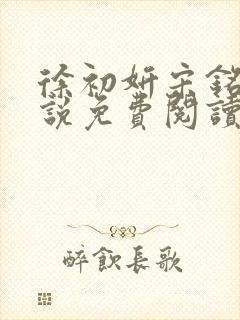 徐初妍宋銘
說免費閱讀
醉飲長歌